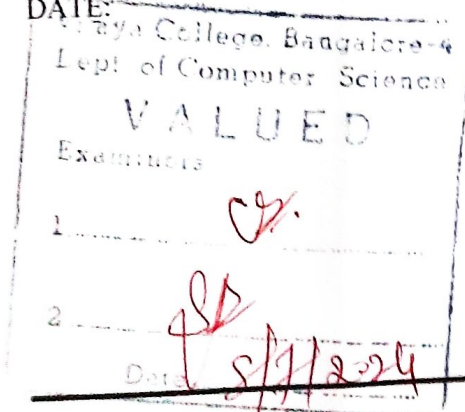 DATE:
College, Bangalore-4
Dept of Computer Science
VALUED
Examiners
1
2
Date 8/7/2024